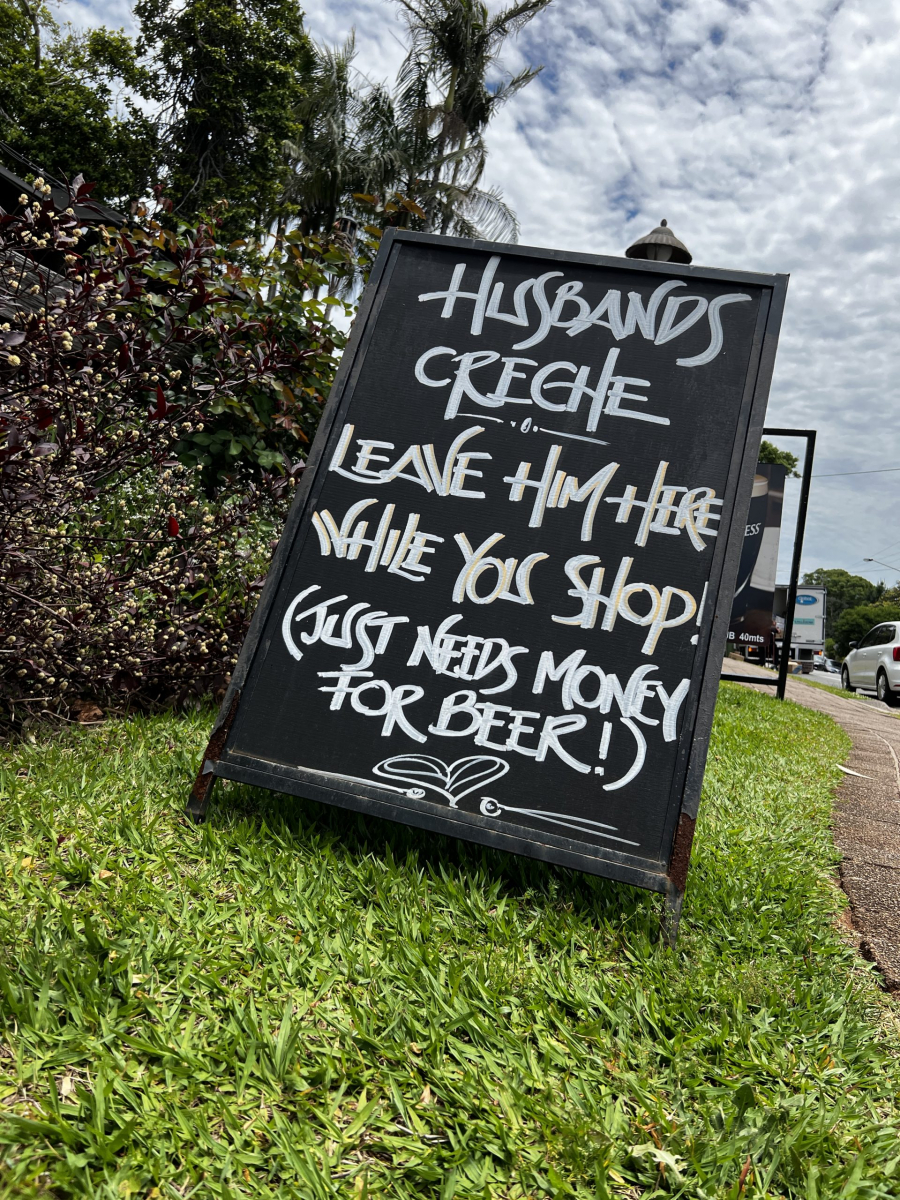 HUSBANDS
CRECHE
LEAVE HIM HERE
WHILE YOU SHOP!
(JUST NEEDS MONEY
FOR BEER!)
ESS
B 40mts